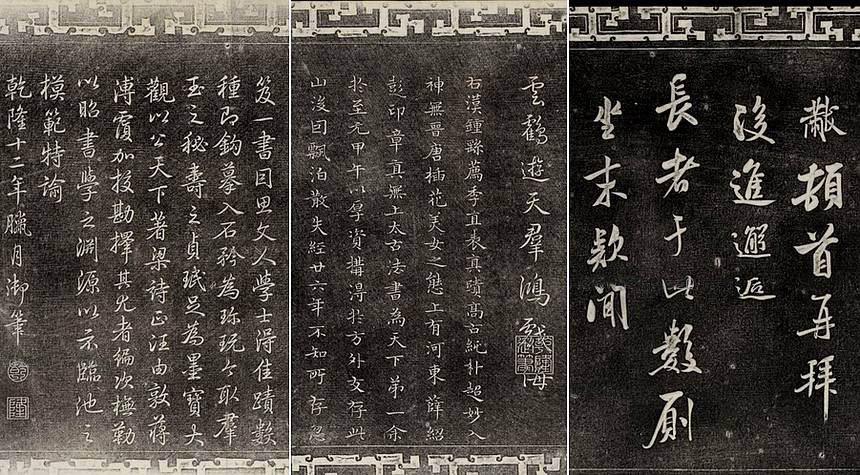 笈一書因思文人學士得佳蹟數
種即鈎摹入石矜為珎玩今取群
玉之秘壽之貞珉足為墨寶大
觀以公天下著梁詩正汪由敦蔣
溥覆加校勘擇其尤者編次橅勒
以昭書學之淵源以示臨池之
模範特諭
乾隆十二年臘月御筆
雲鶴遊天羣鴻戲海
右漢鍾繇薦季直表真蹟高古純朴超妙入
神無晉唐插花美女之態上有河東薛紹
彭印章真無上太古法書為天下第一余
於至元甲午以厚資購得於方外友存此
山後因飄泊散失經廿六年不知所存忽
黻頓首再拜
後進邂逅
長者于此數廁
坐末款聞